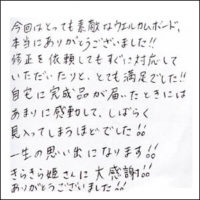 今回はとっても素敵なウエルカムボード、
本当にありがとうございました!!
修正を依頼してもすぐに対応して
いただいたりと、とても満足でした!!
自宅に完成品が届いたときには
あまりに感動して、しばらく
見入ってしまうほどでした!!
一生の思い出になります!!
きらきら姫さんに大感謝!!
ありがとうございました!!